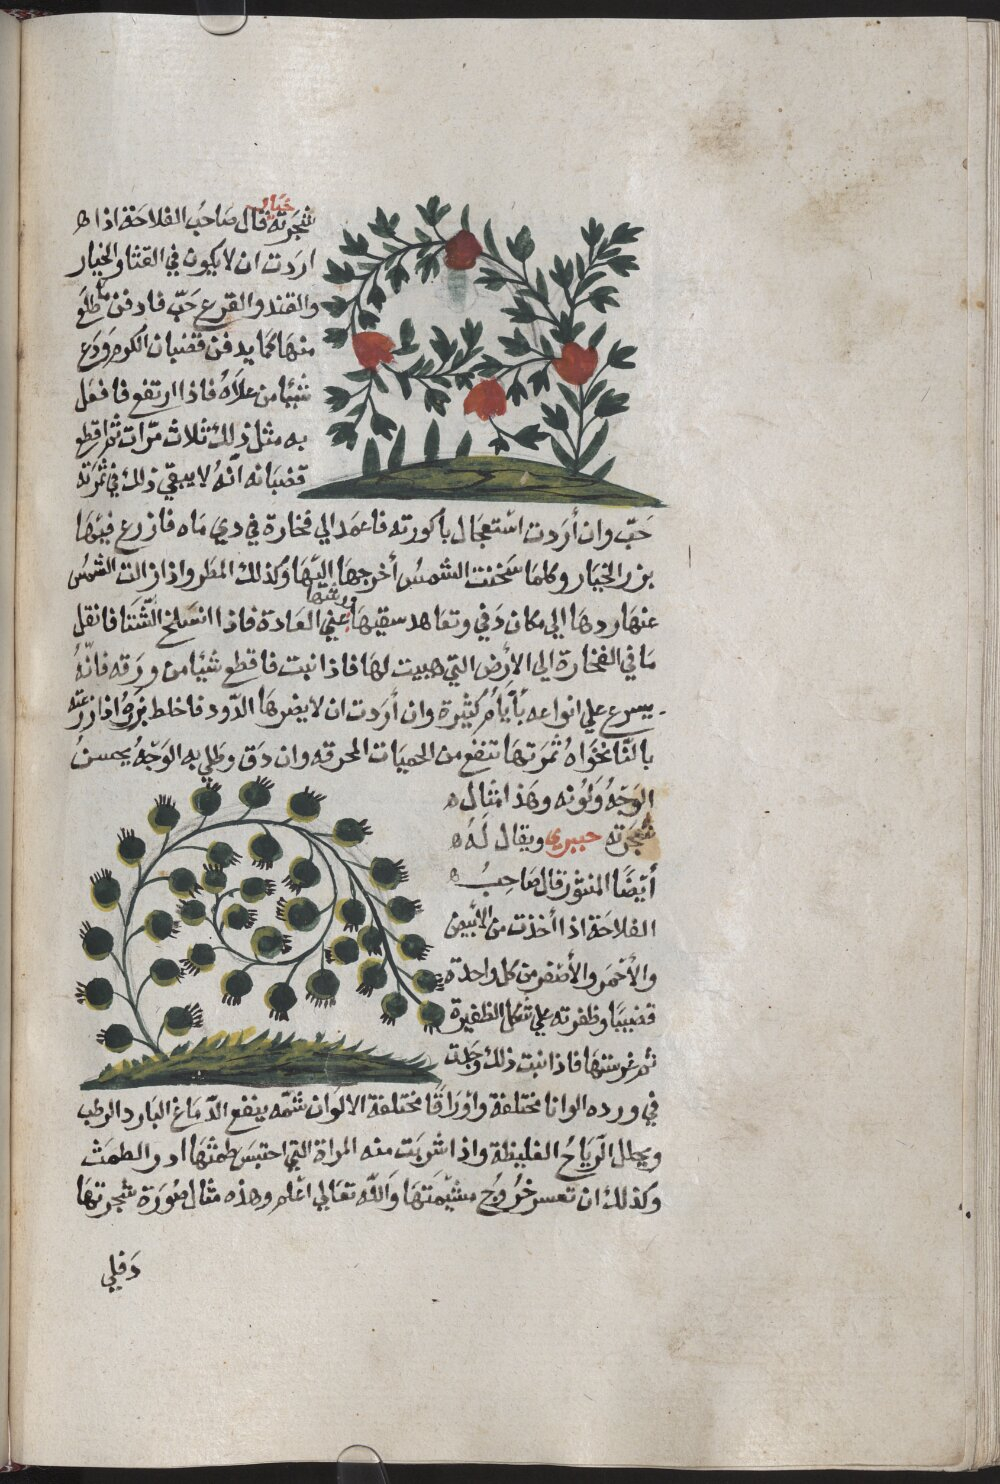 خيار
شجرته قال صاحب الفلاحة اذا ه
اردت ان لا يكون في القثا والخيار
والقند والقرع حَبّ فادفن ما طلع
منها كما يدفن قضبان الكرم ودع
شيئا من علاه فاذا ارتفع فافعل
به مثل ذلك ثلاث مرّات ثم اقطع
قضبانه انّه لا يبقي ذلك في ثمرته
حَبّ وان أردت استعجال باكورته فاعمد الي فخارة في دي ماه فازرع فيها
بزر الخيار وكلما سخنت الشمس أخرجها اليها وكذلك المطر واذا زالت الشمس
ورشها
عنها ردها الي مكان دَفي وتعاهد سقيها عني العادة فاذا انسلخ الشّتا فانقل
ما في الفخارة الي الأرض التي هييت لها فاذا نبت فاقطع شيأ من ورقه فانّه
يسرع علي انواعه بأيام كثيرة وان أردت ان لا يضرها الدّود فاخلط بزره اذا زرعته
بالنّانخواه ثمرتها تنفع من الحميات المحرقه وان دق وطلي به الوجه يحسن
الوجه ولونه وهذا مثال ه
شجرته خيري ويقال له ه
أيضا المنثور قال صاحب ه
الفلاحة اذا أخذت من الأبيض
والأحمر والأصفر من كل واحدة
قضيبا وظفرته علي شكل الظفيرة
ثم غرستها فاذا نبت ذلك وجدت
في ورده الوانا مختلفة وأوراقا مختلفة الالوان شمّه ينفع الدّماغ البارد الرطب
ويحلل الرّياح الغليظة واذا شربت منه المراة التي احتبس طمثها ادر الطمث
وكذلك ان تعسر خروج مشيمتها والله تعالي اعلم وهذه مثال صورة شجرتها
دفلي